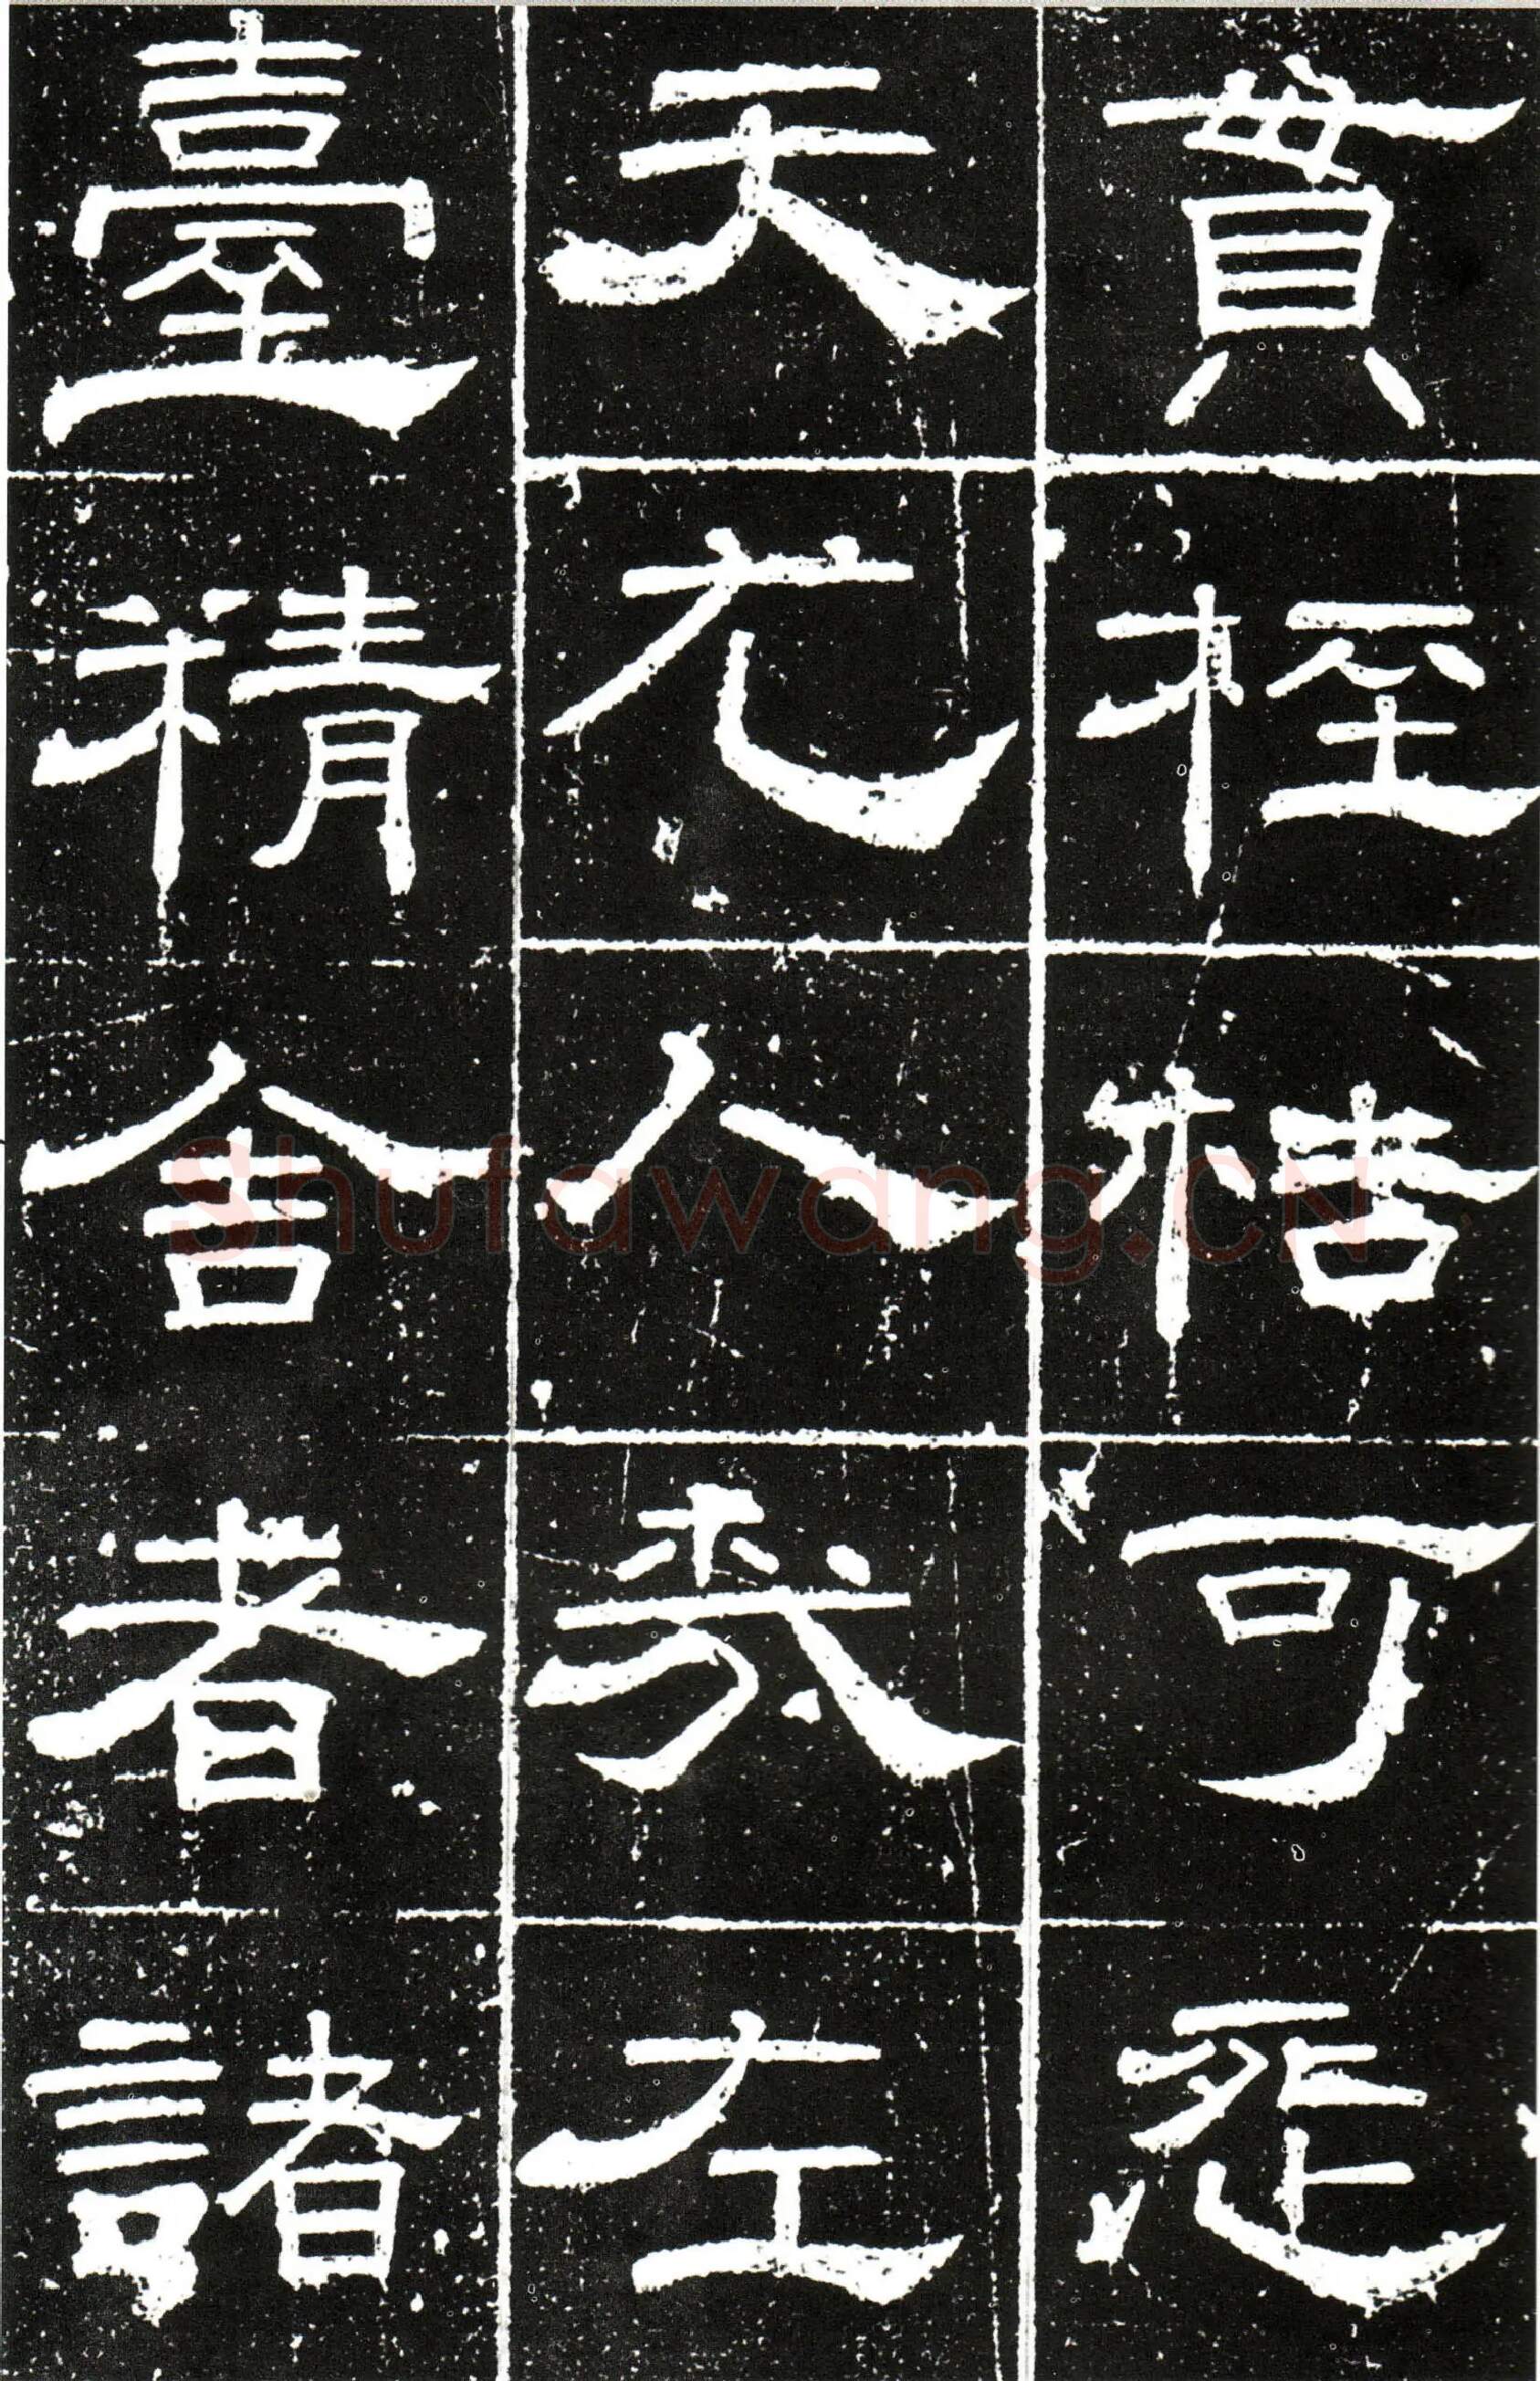 貫桎梏可怨
天尤人哉左
臺精舍者諸
Shufawang.CN